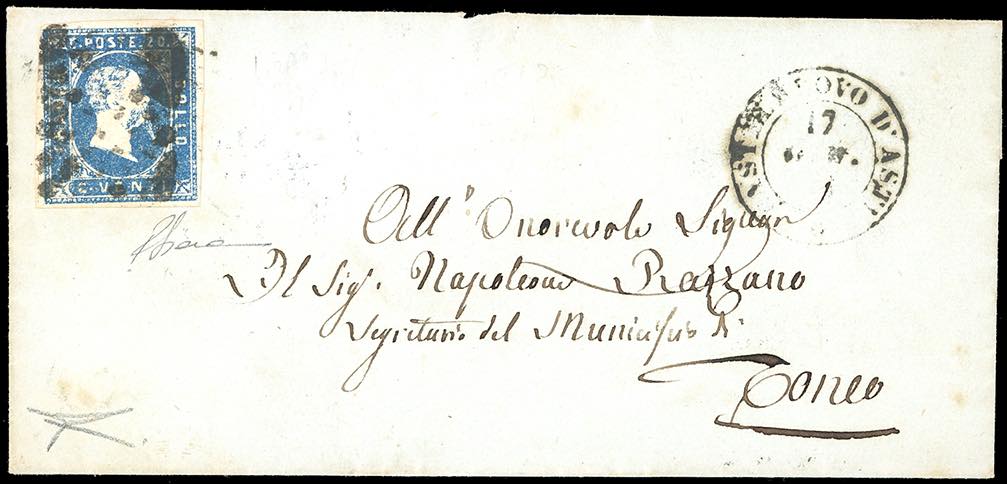 C. POSTE. 20.
BOLLO
C. VENTI
17
All' Onorevole Signor
Il Sig. Napoleone Razzano
Segretario del Municipio di
Tonco